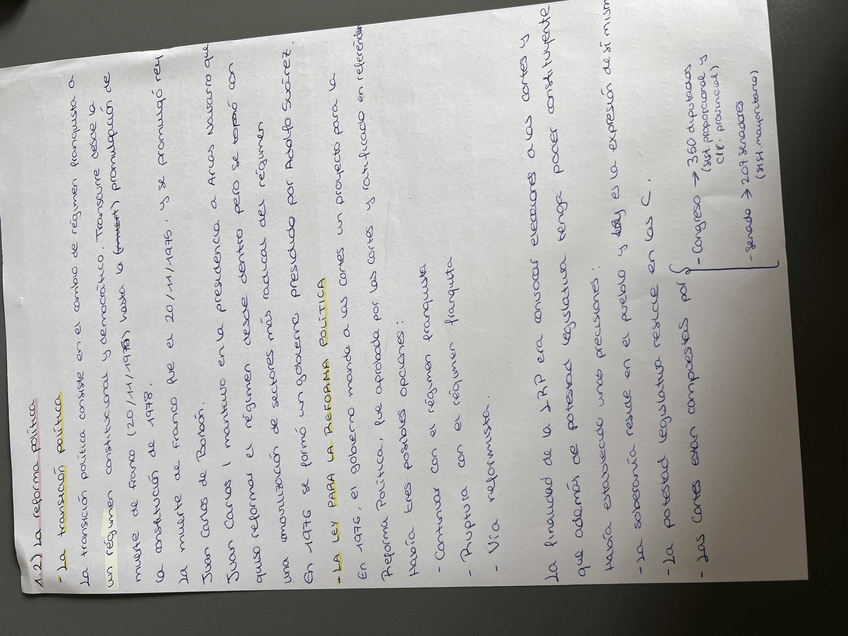 1.2) La reforma política
- La transición política
La transición política consiste en el cambio de régimen franquista a
un régimen constitucional y democrático. Transcurre desde la
muerte de Franco (20/11/1975) hasta la (muert) promulgación de
la constitución de 1978.
La muerte de Franco fue el 20/11/1975, y se promulgó rey
Juan Carlos de Borbón.
Juan Carlos I mantuvo en la presidencia a Arias Navarro que
quiso reformar el régimen desde dentro pero se topó con
una inmovilización de sectores más radical del régimen
En 1976 se formó un gobierno presidido por Adolfo Suárez.
- LA LEY PARA LA REFORMA POLÍTICA
En 1976, el gobierno manda a las cortes un proyecto para la
Reforma Política, fue aprobada por las cortes y ratificado en referéndum
Había tres posibles opciones:
- Continuar con el régimen franquista
- Ruptura con el régimen franquita
- Vía reformista.
La finalidad de la LRP era convocar elecciones a las cortes y
que además de potestad legislativa tenga poder constituyente
Había establecido unas precisiones:
- La soberanía reside en el pueblo y es la expresión de sí mism
- La potestad legislativa reside en las C.
- Las cortes estan compuestas por
- Congreso → 350 diputados
(sist. proporcional y
cir. provincial)
- Senado → 207 senadores
(sist. mayoritario)